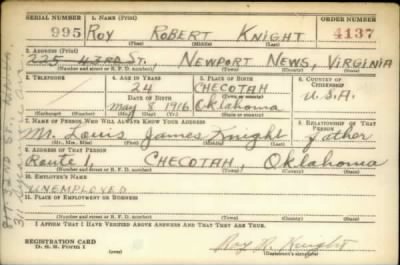 SERIAL NUMBER 1. NAME (Print) ORDER NUMBER
995 Roy ROBERT KNIGHT 4137
(First) (Middle) (Last)
2. ADDRESS (Print)
225 43RD St., NEWPORT NEWS, VIRGINIA
(Number and street or R. F. D. number) (Town) (County) (State)
3. TELEPHONE 4. AGE IN YEARS 5. PLACE OF BIRTH 6. COUNTRY OF CITIZENSHIP
24 CHECOTAH
DATE OF BIRTH (Town or county)
May 8 1916 Oklahoma U.S.A.
(Exchange) (Number) (Mo.) (Day) (Yr.) (State or country)
7. NAME OF PERSON WHO WILL ALWAYS KNOW YOUR ADDRESS 8. RELATIONSHIP OF THAT PERSON
Mr. Louis James Knight father
(Mr., Mrs., Miss) (First) (Middle) (Last)
9. ADDRESS OF THAT PERSON
Route 1, CHECOTAH, Oklahoma
(Number and street or R. F. D. number) (Town) (County) (State)
10. EMPLOYER'S NAME
UNEMPLOYED
11. PLACE OF EMPLOYMENT OR BUSINESS
(Number and street or R. F. D. number) (Town) (County) (State)
I AFFIRM THAT I HAVE VERIFIED ABOVE ANSWERS AND THAT THEY ARE TRUE.
REGISTRATION CARD
D. S. S. Form 1
Roy R. Knight
(Registrant's signature)